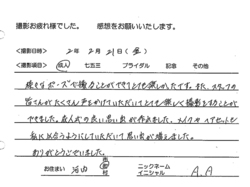 撮影お疲れ様でした。 感想をお願いいたします。
<撮影日時> 2年 2月 21日(金)
<撮影項目> 成人 七五三 ブライダル 記念 その他
様々なポーズや撮ることができてとても楽しかったです。また、スタッフの
皆さんがたくさん声をかけていただいてとても楽しく撮影をすることが
できました。友人より良い思い出が作れました。メイクやヘアセットも
私に似合うようにしていただいて思い出が増えました。
ありがとうございました。
お住まい 河内 ニックネーム
イニシャル A.A